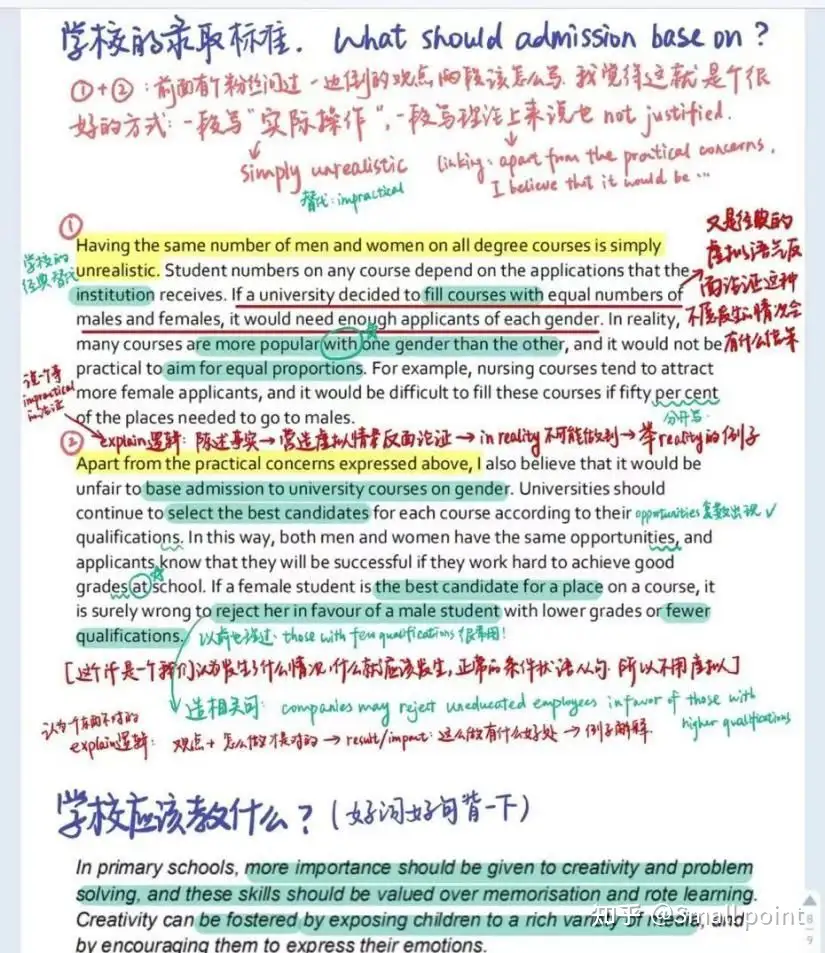 学校的录取标准. What should admission base on?
①+②:前面有个粉丝问过一边倒的观点两段该怎么写. 我觉得这就是个很
好的方式:一段写"实际操作",一段写理论上来说也 not justified.
simply unrealistic
替代:impractical
linking: apart from the practical concerns,
I believe that it would be ...
①
学校的
经典替代
Having the same number of men and women on all degree courses is simply
unrealistic. Student numbers on any course depend on the applications that the
institution receives. If a university decided to fill courses with equal numbers of
males and females, it would need enough applicants of each gender. In reality,
many courses are more popular with one gender than the other, and it would not be
practical to aim for equal proportions. For example, nursing courses tend to attract
more female applicants, and it would be difficult to fill these courses if fifty per cent
of the places needed to go to males.
又是经典的
虚拟语气反
面论证这种
不会发生的情况会
有什么结果
分开写
impractical
的论证
explain逻辑:陈述事实→营造虚拟情景反面论证→in reality不可能做到→举reality的例子
②
Apart from the practical concerns expressed above, I also believe that it would be
unfair to base admission to university courses on gender. Universities should
continue to select the best candidates for each course according to their
qualifications. In this way, both men and women have the same opportunities, and
applicants know that they will be successful if they work hard to achieve good
grades at school. If a female student is the best candidate for a place on a course, it
is surely wrong to reject her in favour of a male student with lower grades or fewer
qualifications.
opportunities复数出现✓
以前也说过:those with few qualifications很常用!
[这个if是一个我们认为发生了什么情况,什么就应该发生,正常的条件状语从句. 所以不用虚拟]
造相关句: companies may reject uneducated employees in favor of those with
higher qualifications
认为一个东西不对的
explain逻辑: 观点+怎么做才是对的→result/impact:这么做有什么好处→例子解释.
学校应该教什么?(好词好句背一下)
In primary schools, more importance should be given to creativity and problem
solving, and these skills should be valued over memorisation and rote learning.
Creativity can be fostered by exposing children to a rich variety of media, and
by encouraging them to express their emotions.
知乎 @Smallpoint
8
9